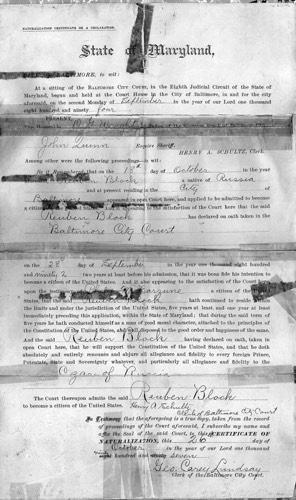 NATURALIZATION CERTIFICATE ON A DECLARATION.
State of Maryland,
BALTIMORE, to wit:
At a sitting of the BALTIMORE CITY COURT, in the Eighth Judicial Circuit of the State of
Maryland, begun and held at the Court House in the City of Baltimore, in and for the city
aforesaid, on the second Monday of September in the year of our Lord one thousand
eight hundred and ninety four
PRESENT
The Hon
John Quinn Esquire Sheriff.
HENRY A. SCHULTZ, Clerk.
Among other were the following proceedings—to wit:
Be it Remembered, that on the 15th day of October in the year
Block a native of Russia
and at present residing in the City of
Baltimore appeared in open Court here, and applied to be admitted to become
a citizen of the satisfaction of the Court here that the said
Reuben Block has declared on oath taken in the
Baltimore City Court
on the 28 day of September in the year one thousand eight hundred
and Ninety 2 two years at least before his admission, that it was bona fide his intention to
become a citizen of the United States. And it also appearing to the satisfaction of the Court
upon the testimony a citizen of the United
States, that the said Reuben Block hath continued to reside within
the limits and under the jurisdiction of the United States, five years at least, and one year at least
immediately preceding this application, within the State of Maryland; that during the said term of
five years he hath conducted himself as a man of good moral character, attached to the principles of
the Constitution of the United States, and well disposed to the good order and happiness of the same.
And the said Reuben Block having declared on oath, taken in
open Court here, that he will support the Constitution of the United States, and that he doth
absolutely and entirely renounce and abjure all allegiance and fidelity to every foreign Prince,
Potentate, State and Sovereignty whatever, and particularly all allegiance and fidelity to the
Czar of Russia
The Court thereupon admits the said Reuben Block
to become a citizen of the United States. Henry A Schultz
Clerk of Baltimore City Court
In Testimony that the aforegoing is a true copy, taken from the record
of proceedings of the Court aforesaid, I subscribe my name and
affix the Seal of the said Court, to this CERTIFICATE OF
NATURALIZATION, this 26 day of
October in the year of our Lord one thousand
hundred and seven
Geo. Carey Lindsay
Clerk of the Baltimore City Court.